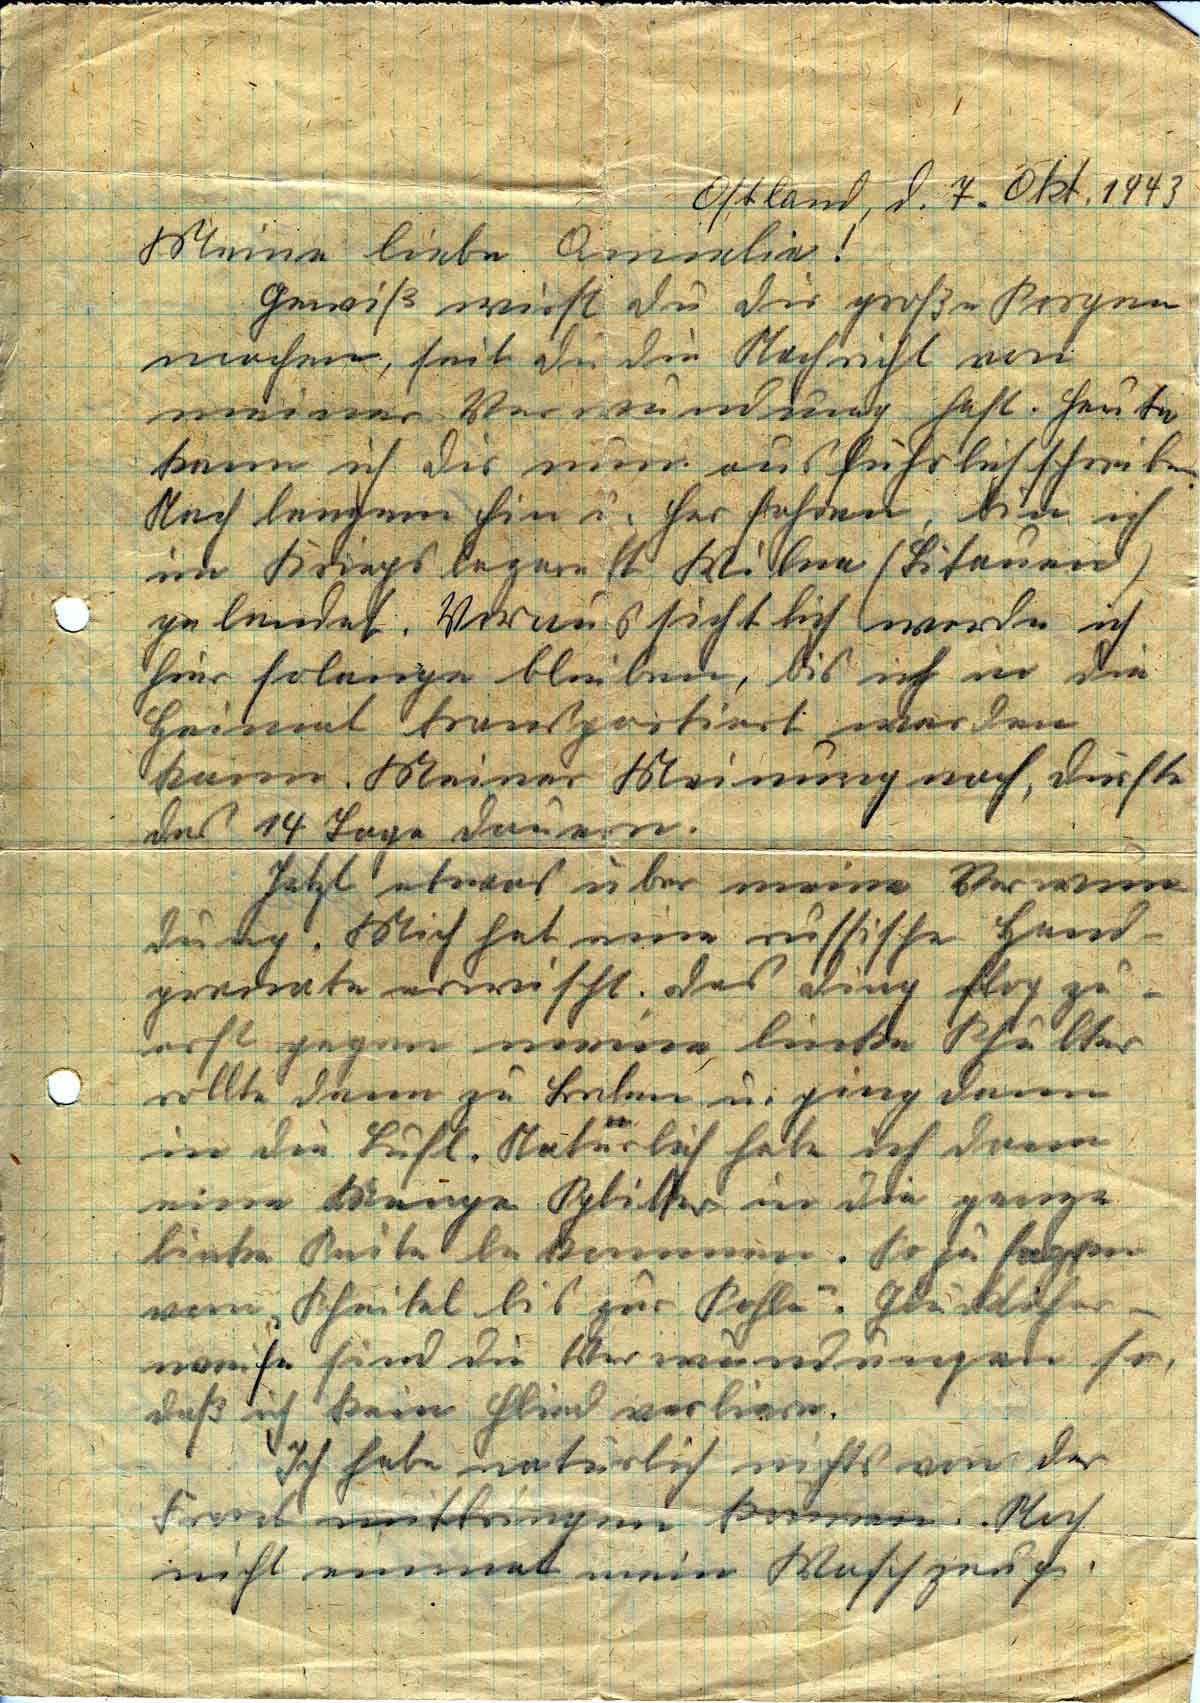 Ostland, d. 7. Okt. 1943
Meine liebe Annelie!
Gewiß wirst du dir große Sorgen
machen, seit du die Nachricht von
meiner Verwundung hast. Heute
kann ich dir nun ausführlich schreiben.
Nach langem hin u. her fahren, bin ich
im Kriegslazarett Wilna (Litauen)
gelandet. Voraussichtlich werde ich
hier solange bleiben, bis ich in die
Heimat transportiert werden
kann. Meiner Meinung nach, dürfte
das 14 Tage dauern.
Jetzt etwas über meine Verwun
dung. Mich hat eine russische Hand-
granate erwischt. das ding flog zu-
erst gegen meine linke Schulter
rollte dann zu Boden u. ging dann
in die Luft. Natürlich habe ich dann
eine Menge Splitter in die ganze
linke Seite bekommen. Sozusagen
vom „Scheitel bis zur Sohle". Glücklicher-
weise sind die Verwundungen so,
daß ich kein Glied verliere.
Ich habe natürlich nichts von der
Front mitbringen können. Noch
nicht einmal mein Waschzeug.